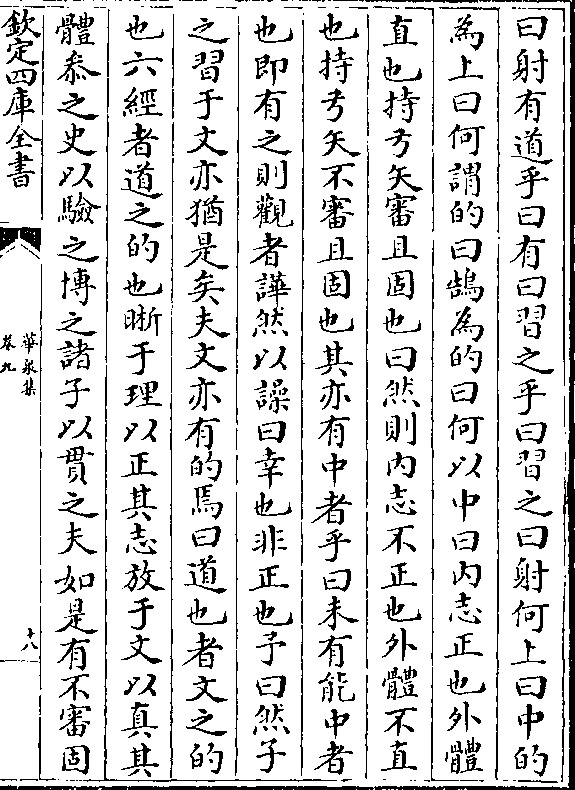 曰射有道乎曰有曰習之乎曰習之曰射何上曰中的
為上曰何謂的曰鵠為的曰何以中曰内志正也外體
直也持弓矢審且固也曰然則内志不正也外體不直
也持弓矢不審且固也其亦有中者乎曰未有能中者
也即有之則觀者譁然以譟曰幸也非正也予曰然子
之習于文亦猶是矣夫文亦有的焉曰道也者文之的
也六經者道之的也晣于理以正其志放于文以真其
體叅之史以驗之博之諸子以貫之夫如是有不審固
欽定四庫全書
華泉集
卷九
十八